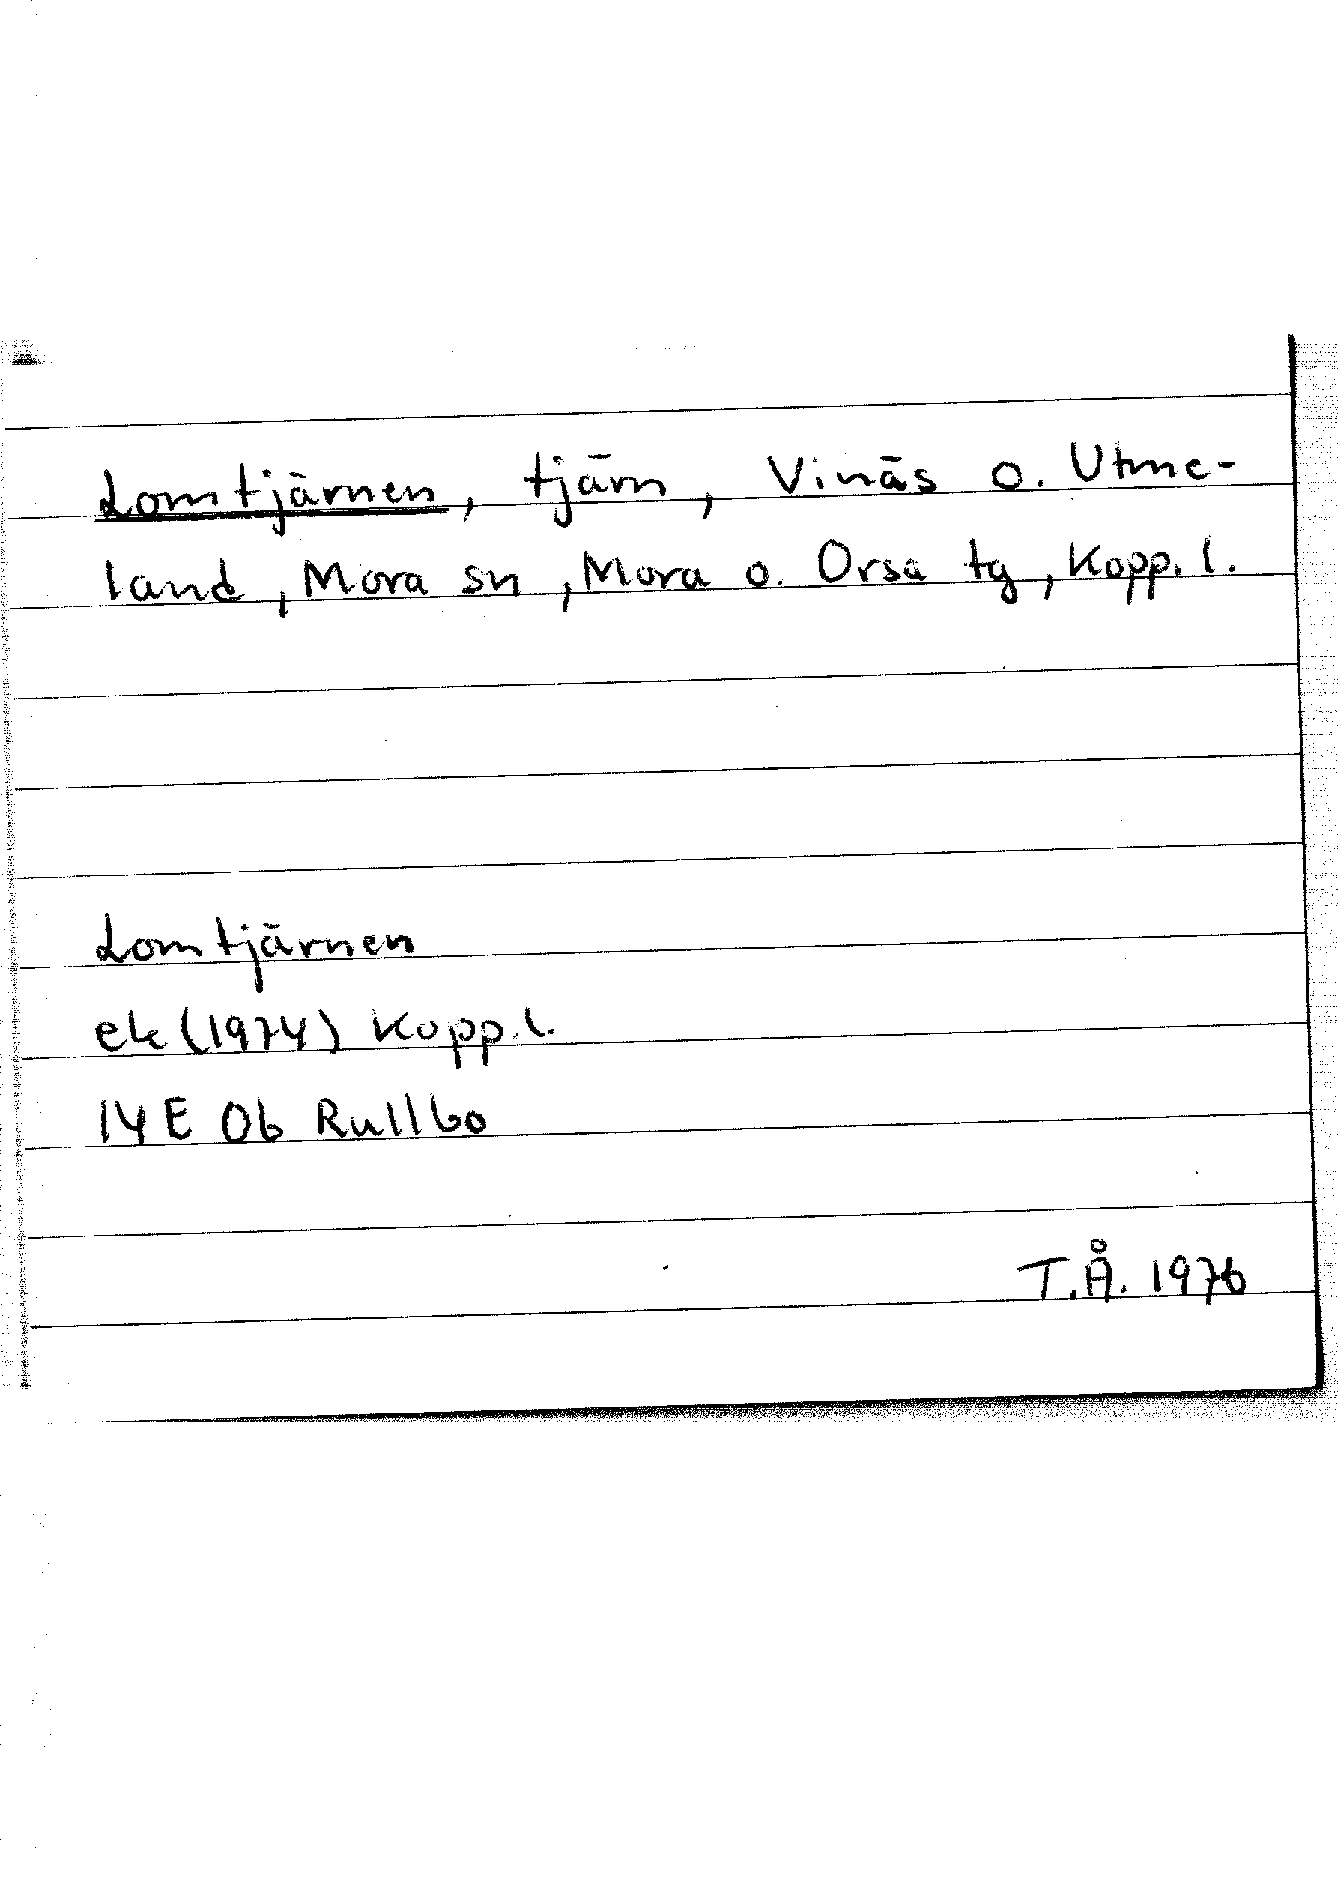 Lomtjärnen, tjärn, Vinäs o. Utme-
land, Mora sn, Mora o. Orsa tg, Kopp. l.
Lomtjärnen
ek (1974) Kopp. l.
14 E 0b Rullbo
T.Å. 1976